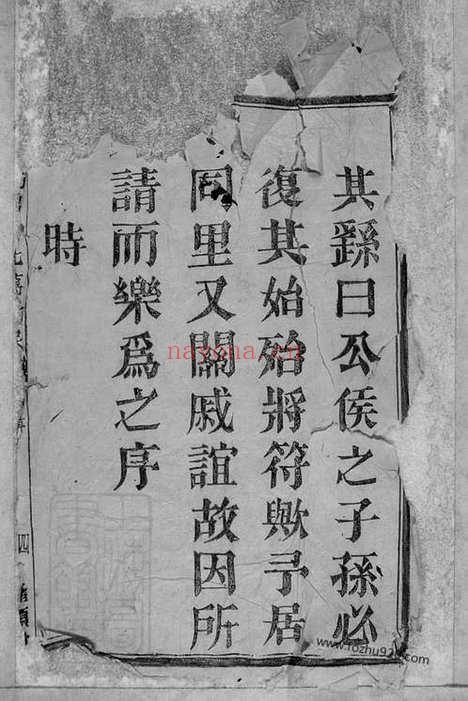 其繇曰公侯之子孫必
復其始殆將符歟予居
同里又關戚誼故因所
請而樂爲之序
時
四
nayona.cn
www.fozhu920.com